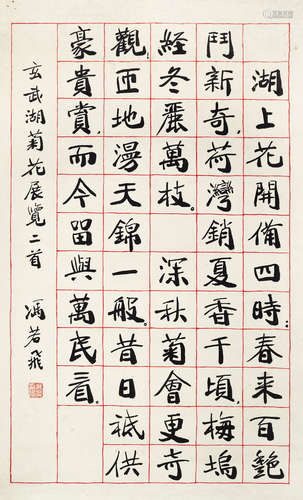 湖上花開備四時，春来百艷
鬥新奇。荷灣銷夏香千頃，梅塢
經冬麗萬枝。深秋菊會更奇
觀，匝地漫天錦一般。昔日祗供
豪貴賞，而今留與萬民看。
玄武湖菊花展覽二首 馮若飛